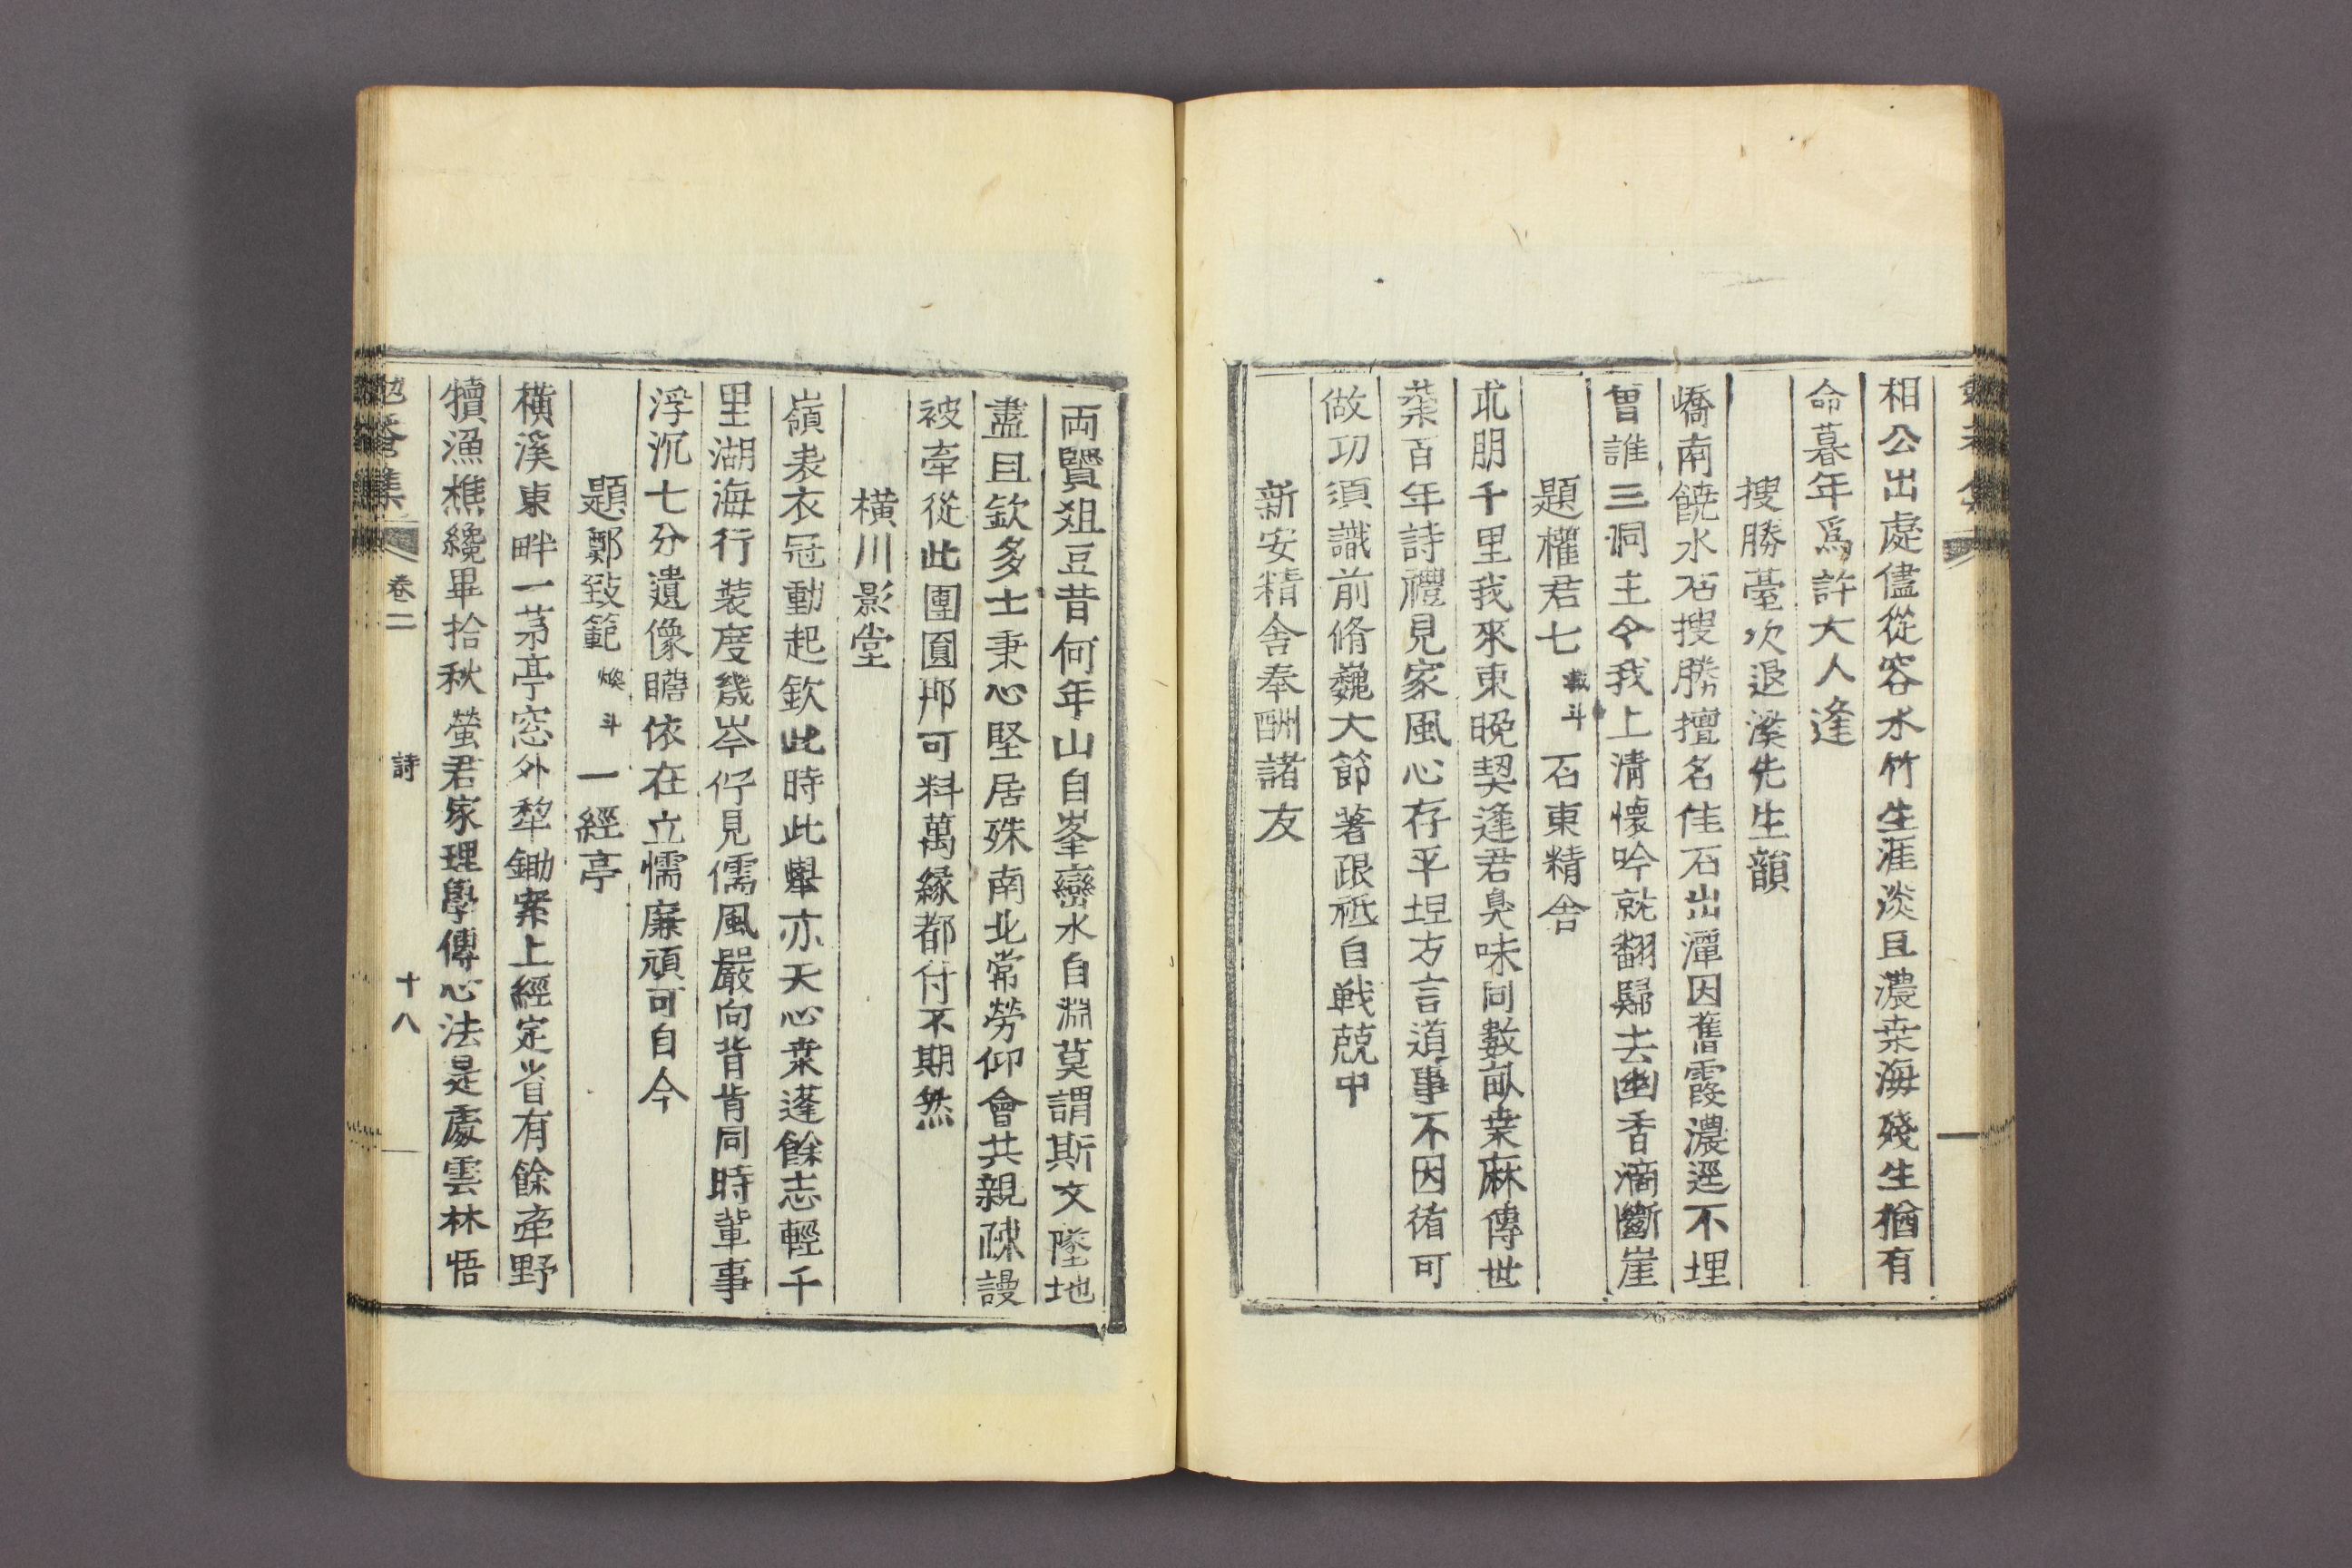 相公出處儘從容水竹生涯淡且濃桒海殘生猶有
命暮年爲許大人逢
搜勝䑓次退溪先生韻
嶠南饒水石搜勝擅名佳石出潭因舊霞濃逕不埋
曾誰三洞主令我上清懷吟就翻歸去幽香滴斷崖
題權君七載斗石東精舍
北朋千里我來東晚契逢君臭味同數畝桒麻傳世
業百年詩禮見家風心存平坦方言道事不因循可
做功須識前脩巍大節著跟祗自戦兢中
新安精舍奉酬諸友
両賢俎豆昔何年山自峯巒水自淵莫謂斯文墜地
盡且欽多士秉心堅居殊南北常勞仰會共親疎謾
被牽從此團圓那可料萬緣都付不期然
橫川影堂
嶺表衣冠動起欽此時此舉亦天心桒蓬餘志輕千
里湖海行裝度幾岑佇見儒風嚴向背肯同時輩事
浮沉七分遺像瞻依在立懦廉頑可自今
題鄭致範煥斗一經亭
橫溪東畔一茅亭窓外犂鋤案上經定省有餘牽野
犢漁樵纔畢拾秋螢君家理學傳心法是處雲林悟
勉菴集 卷二 詩 十八